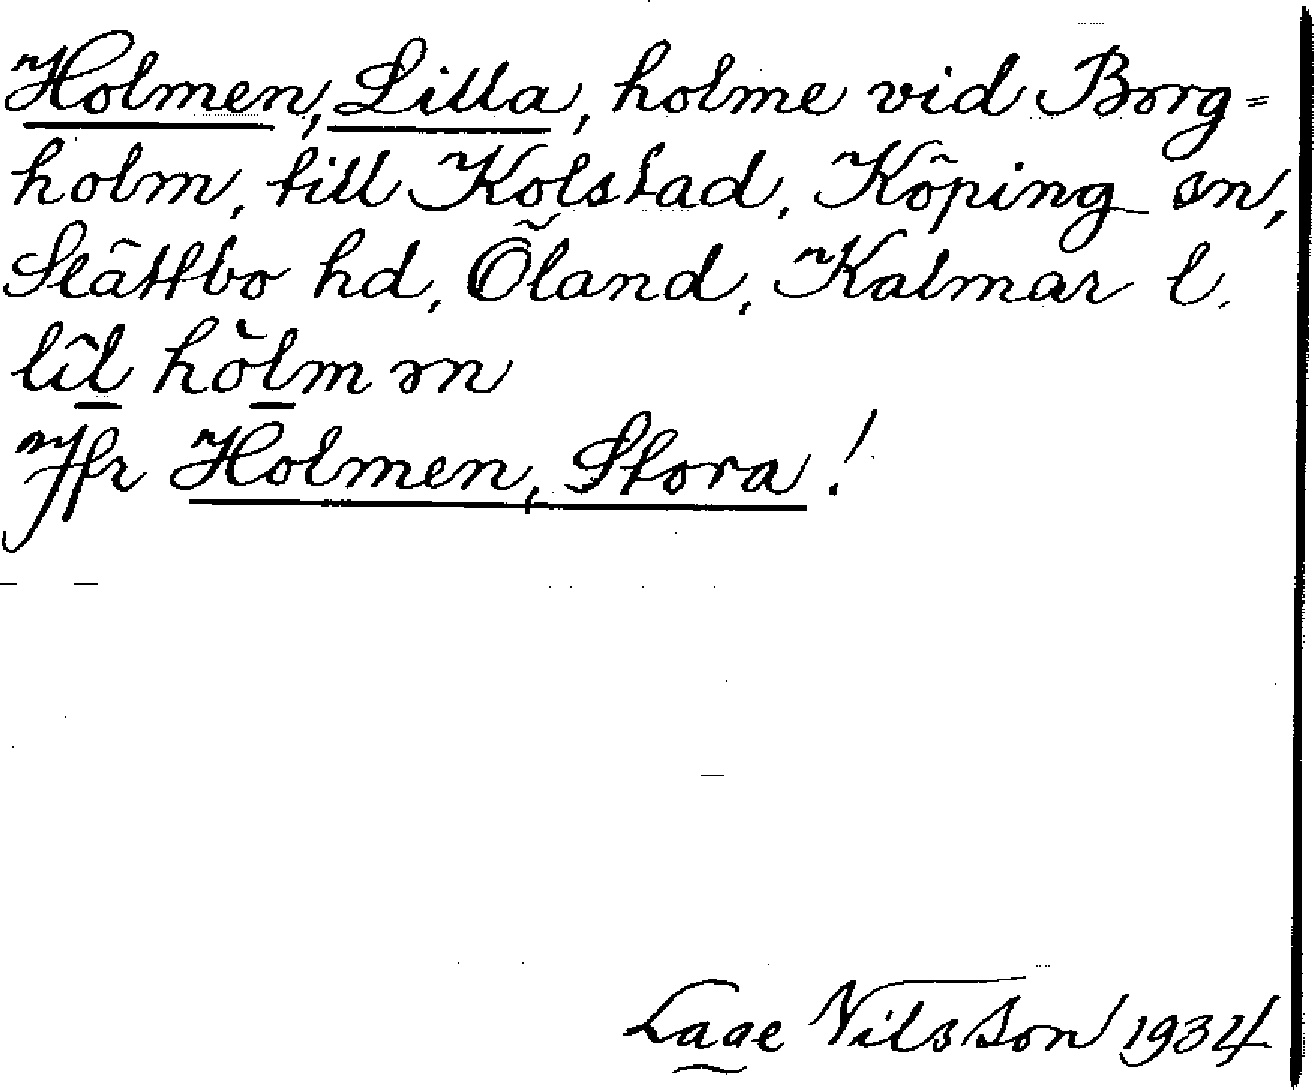 Holmen, Lilla, holme vid Borg=
holm, till Kolstad, Köping sn,
Slättbo hd, Öland, Kalmar l.
lìl hòlmən
Jfr Holmen, Stora!
Lage Nilsson 1934